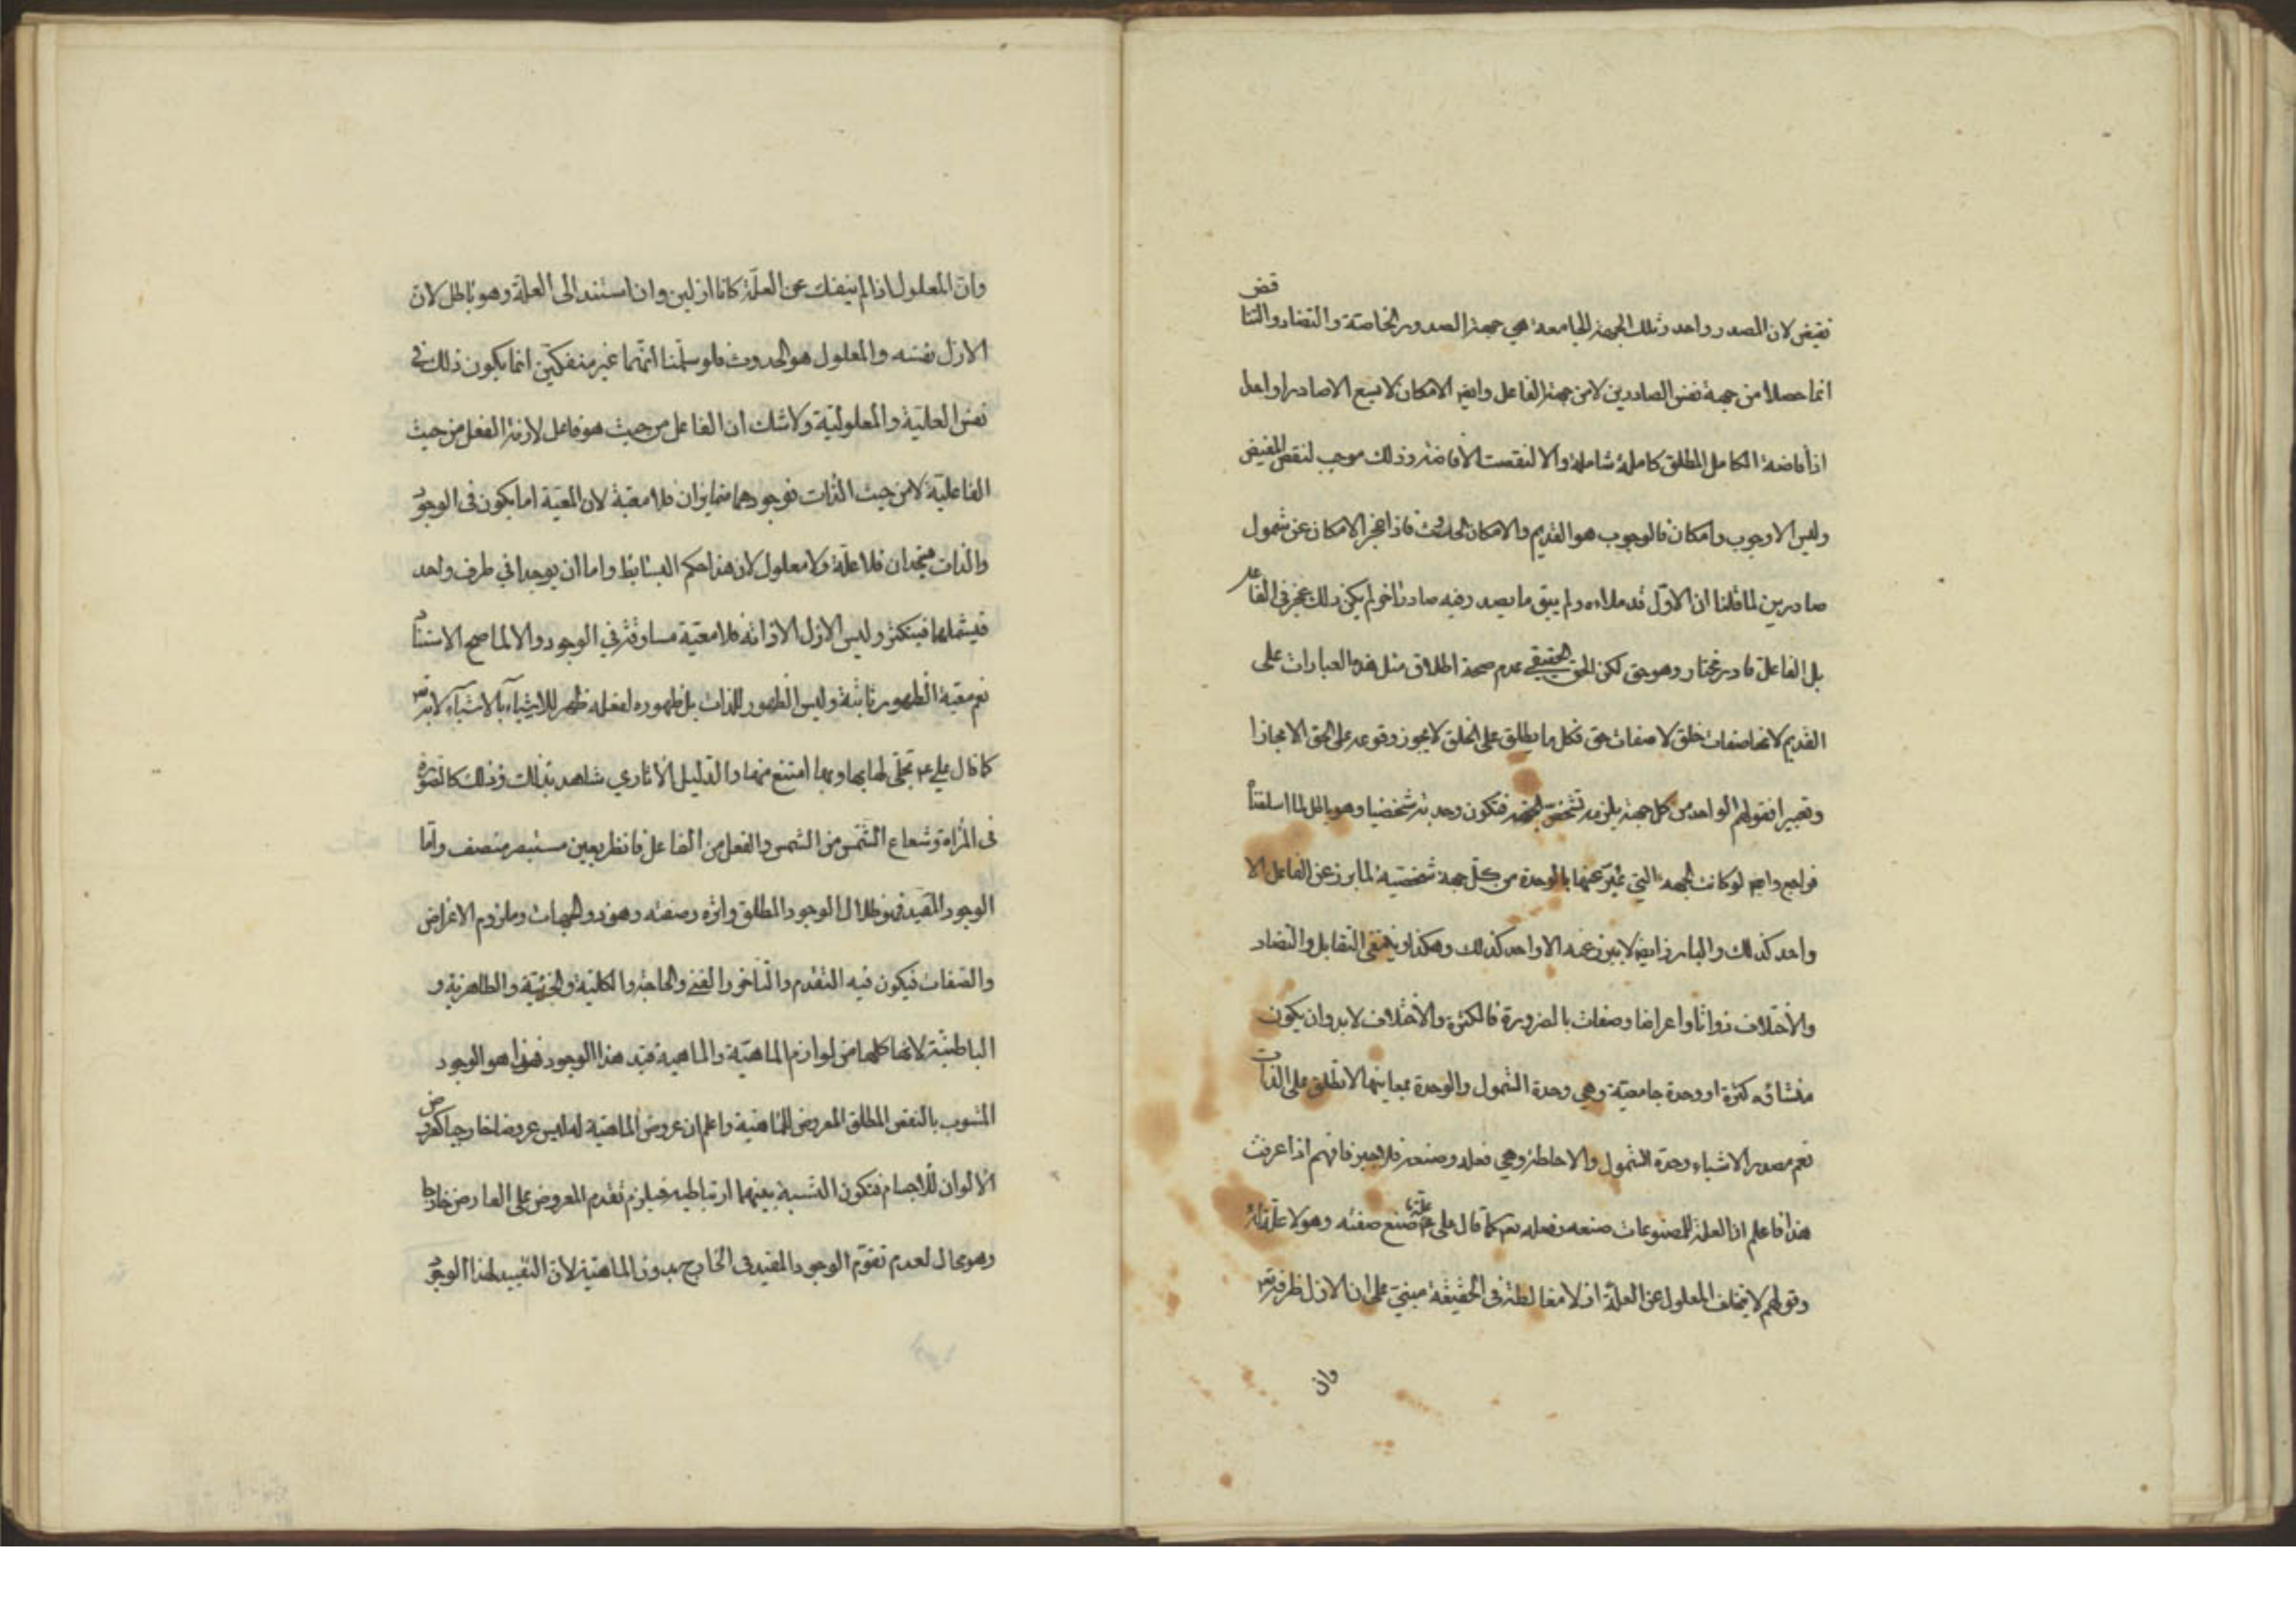 نقيض لان المصدر واحد وتلك الجهة الجامعة هي جهة الصدور الخاصة والتضاد والتناقض
انما حصلا من جهة نفس الصادرين لا من جهة الفاعل وايضا الامكان لا يسع الا صادرا واحدا
اذ افاضة الكامل المطلق كاملة شاملة والا لنقصت الافاضة وذلك موجب لنقص المفيض
وليس الا وجوب وامكان فالوجوب هو القديم والامكان الحدوث فاذا عجز الامكان عن شمول
صادرين لما قلنا ان الاول قد ملاءه ولم يبق ما يصدر فيه صادر اخر لم يكن ذلك عجز في الفاعل
بل الفاعل قادر مختار وهو حق لكن الحق الحقيقي عدم صحة اطلاق مثل هذه العبارات على
القديم لانها صفات خلق لا صفات حق فكل ما يطلق على الخلق لا يجوز وقوعه على الحق الا مجازا
وتعبيرا فقولهم الواحد من كل جهة يلزمه تشخص الجهة فتكون وحدته شخصيا وهو باطل لما اسلفنا
فراجع وايضا لو كانت الجهة التي عبر عنها بالوحدة من كل جهة شخصية لما برز عن الفاعل الا
واحد كذلك والبارز ايضا لا يبرز عنه الا واحد كذلك وهكذا وينتفي التقابل والتضاد
والاختلاف ذواتا واعراضا وصفات بالضرورة فالكثرة والاختلاف لا بد وان يكون
منشاؤه كثرة او وحدة جامعية وهي وحدة الشمول والوحدة بمعانيها لا تطلق على الذات
نعم مصدر الاشياء وحدة الشمول والاحاطة وهي فعله وصنعه فلا ضير فافهم اذا عرفت
هذا فاعلم ان العلة للمصنوعات صنعه وفعله تع كما قال علي ع علة ما صنع صنعه وهو لا علة له
وقولهم لا يتخلف المعلول عن العلة ازلا مغالطة في الحقيقة مبني على ان الازل ظرفية
وان
وان المعلول اذا لم ينفك عن العلة كانا ازلين وان استند الى العلة وهو باطل لان
الازل نفسه والمعلول هو الحدوث فلو سلمنا انهما غير منفكين انما يكون ذلك في
نفس العلية والمعلولية ولا شك ان الفاعل من حيث هو فاعل لازمة الفعل من حيث
الفاعلية لا من حيث الذات فوجودهما متمايزان فلا معية لان المعية اما يكون في الوجود
والذات متحدان فلا علة ولا معلول لان هذا حكم البسائط واما ان يوجدا في طرف واحد
فيشملهما فيتكثر وليس الازل الا ذاته فلا معية مساوقة في الوجود والا لما صح الاستناد
نعم معية الظهور ثابتة وليس الظهور للذات بل ظهوره لفعله ظهر للاشياء بالاشياء لا بذاته
كما قال علي ع تجلى لها بها وبها امتنع منها والدليل الاثاري شاهد بذلك وذلك كالصورة
في المرآة وشعاع الشمس من الشمس والفعل من الفاعل فانظر بعين مستبصر منصف واما
الوجود المقيد فهو ظلال الوجود المطلق واثره وصفته وهو ذو الجهات وملزوم الاعراض
والصفات فيكون فيه التقدم والتاخر والغنى والحاجة والكلية والجزئية والظاهرية و
الباطنية لانها كلها من لوازم الماهية والماهية قيد هذا الوجود فهذا هو الوجود
المشوب بالنقص المطلق المعروض للماهية واعلم ان عروض الماهية له ليس عروضا خارجيا كعروض
الالوان للاجسام فتكون النسبة بينهما ارتباطيه فيلزم تقدم المعروض على العارض خارجا
وهو محال لعدم تقوم الوجود المقيد في الخارج بدون الماهية لان التقييد لهذا الوجود